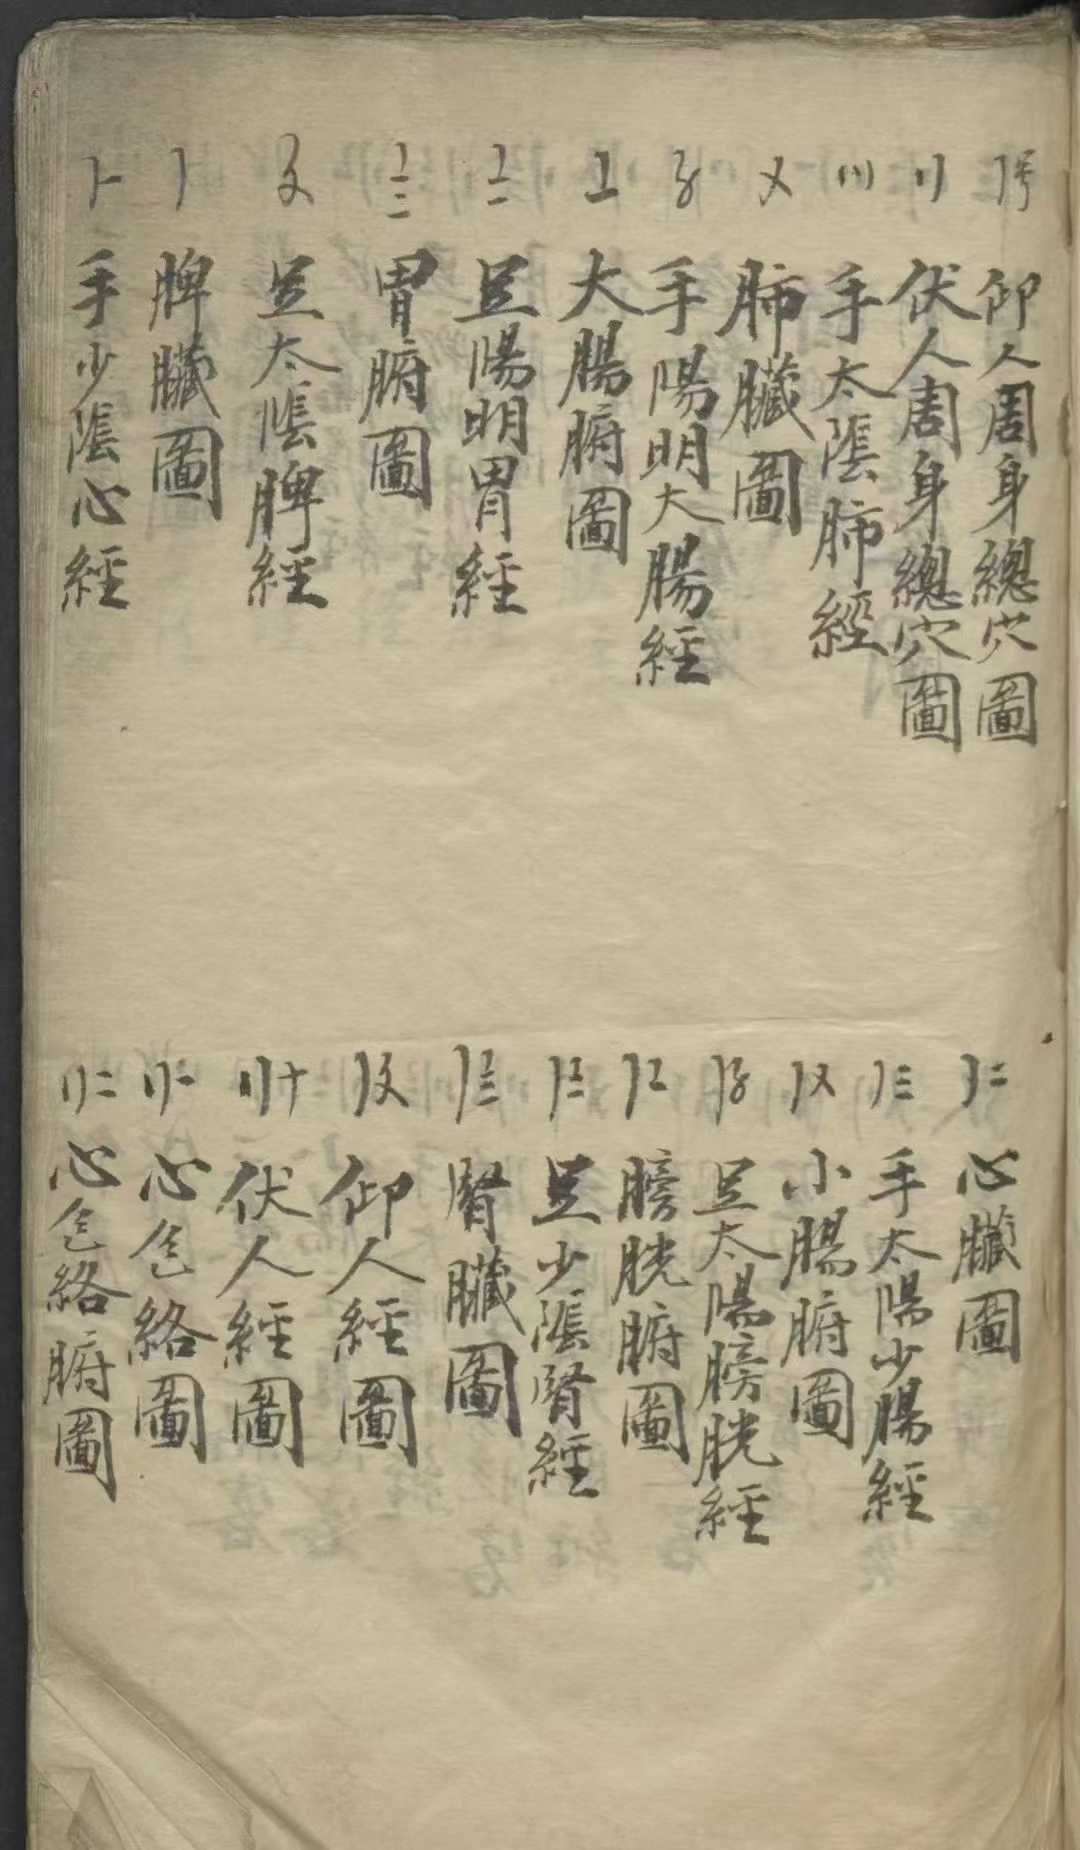 〡号 仰人周身總穴圖
〢 伏人周身總穴圖
〣 手太陰肺經
〤 肺臟圖
〥 手陽明大腸經
〦 大腸腑圖
〧 足陽明胃經
〨 胃腑圖
〩 足太陰脾經
〡 脾臟圖
〡一 手少陰心經
〡二 心臟圖
〡三 手太陽少腸經
〡〤 小腸腑圖
〡〥 足太陽膀胱經
〡〦 膀胱腑圖
〡〧 足少陰腎經
〡〨 腎臟圖
〡〩 仰人經圖
〢十 伏人經圖
〢一 心包絡圖
〢二 心包絡腑圖